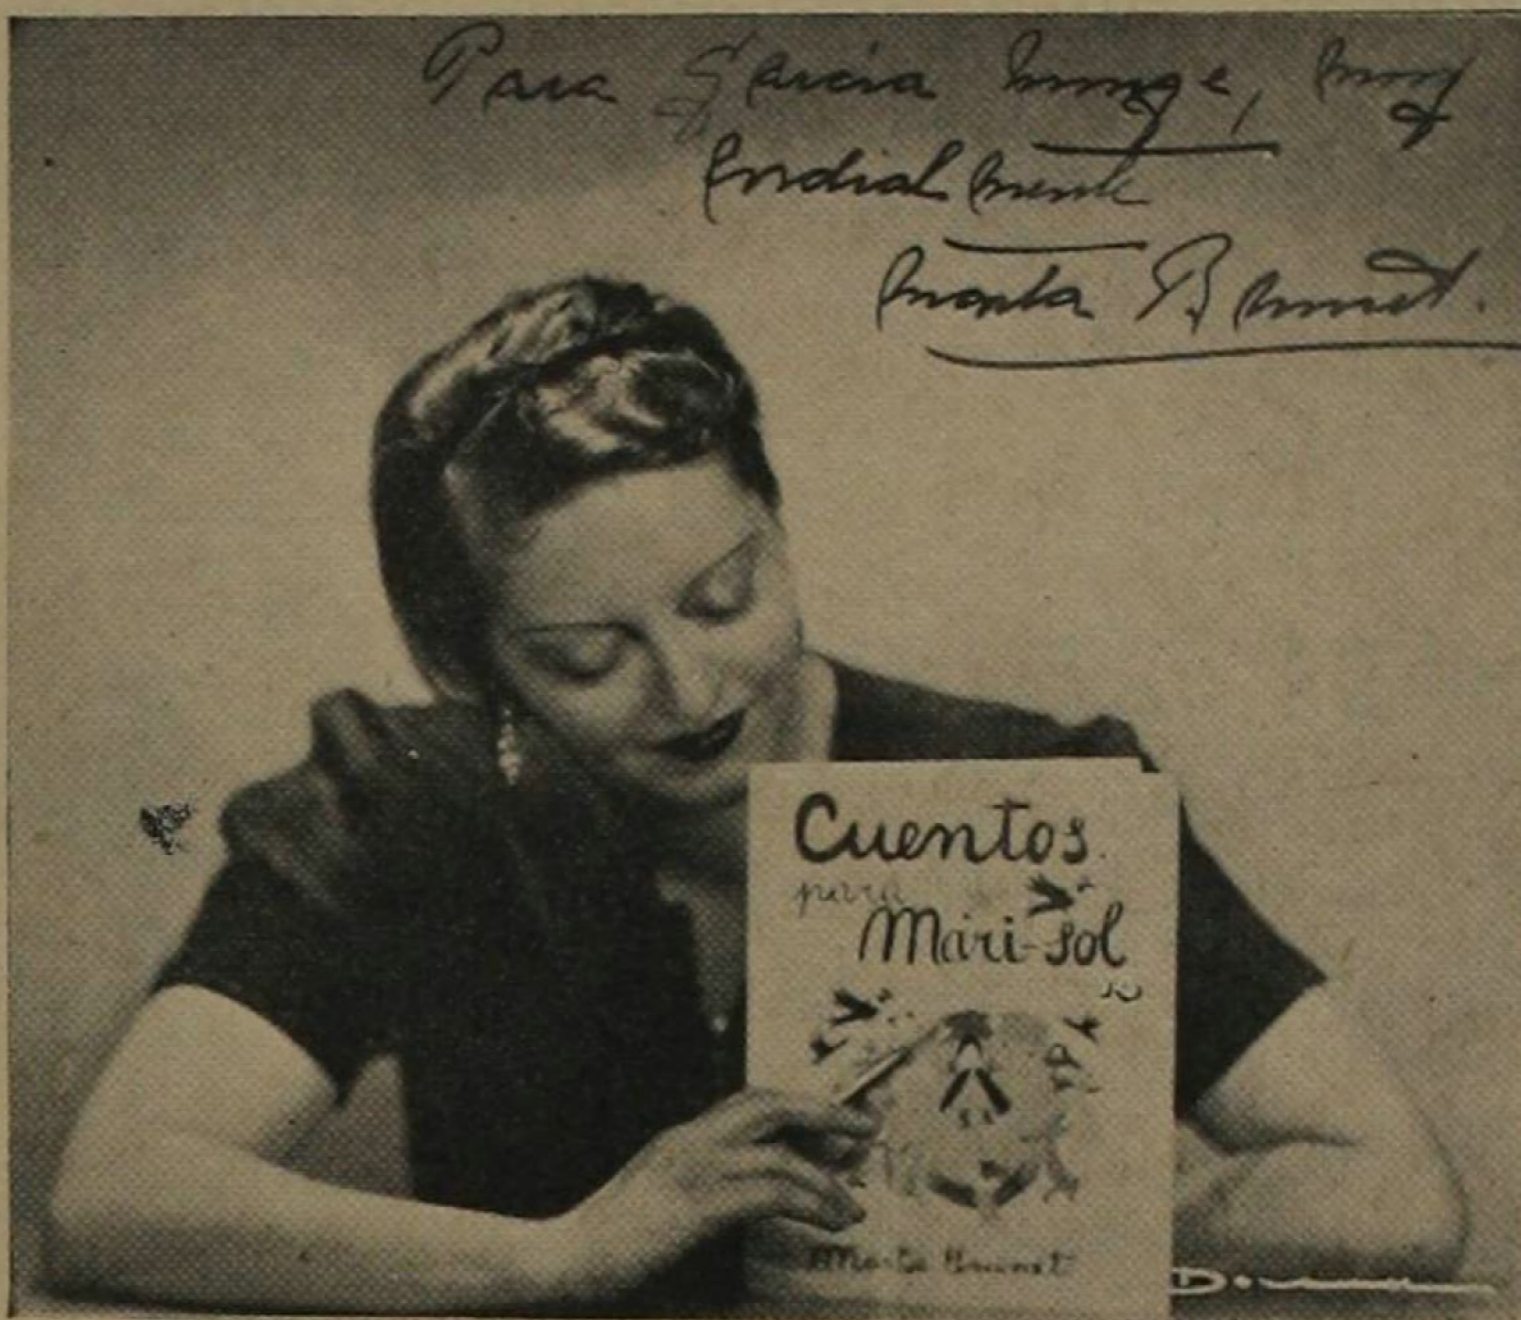 Para García Monge, muy
cordialmente
Marta Brunet.
Cuentos
para
Mari-Sol
Marta Brunet